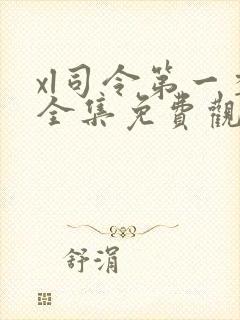 xl司令第一
全集免費觀
舒涓